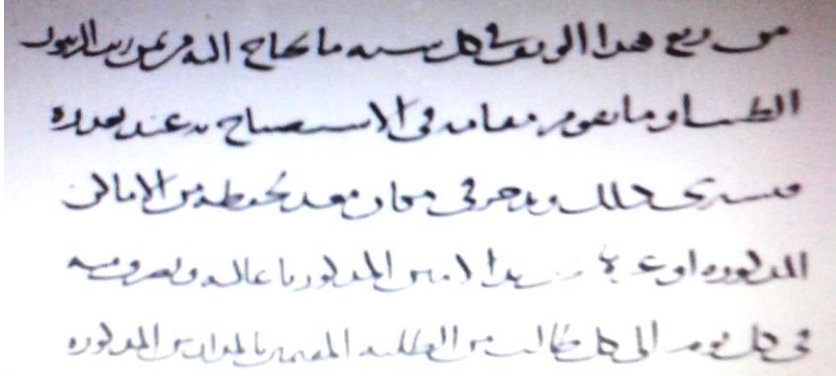 من ريع هذا الوقف في كل سنة ما يحتاج اليه من ثمن زيت الزيتون
الطيب او ما يقوم مقامه في الاستصباح به عند تعذره
فيشتري ذلك ويدخر في مكان معد لحفظه من الاماكن
المذكورة او غيرها بيد الامين المذكور باعاليه ويصرف منه
في كل يوم الى كل طالب من الطلبة المقيمين بالمدارس المذكورة